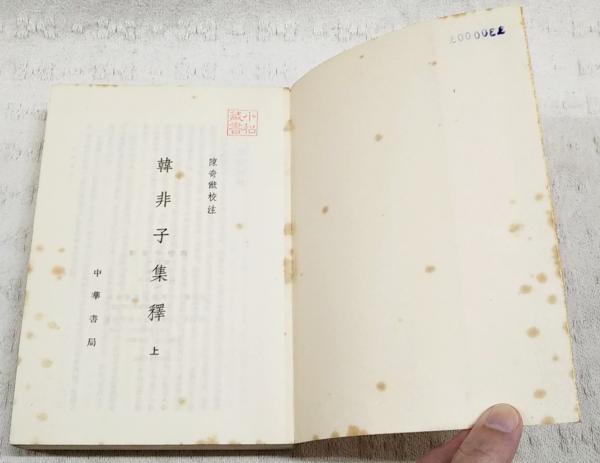 陳奇猷校注
韓非子集釋 上
中華書局
小松
藏書